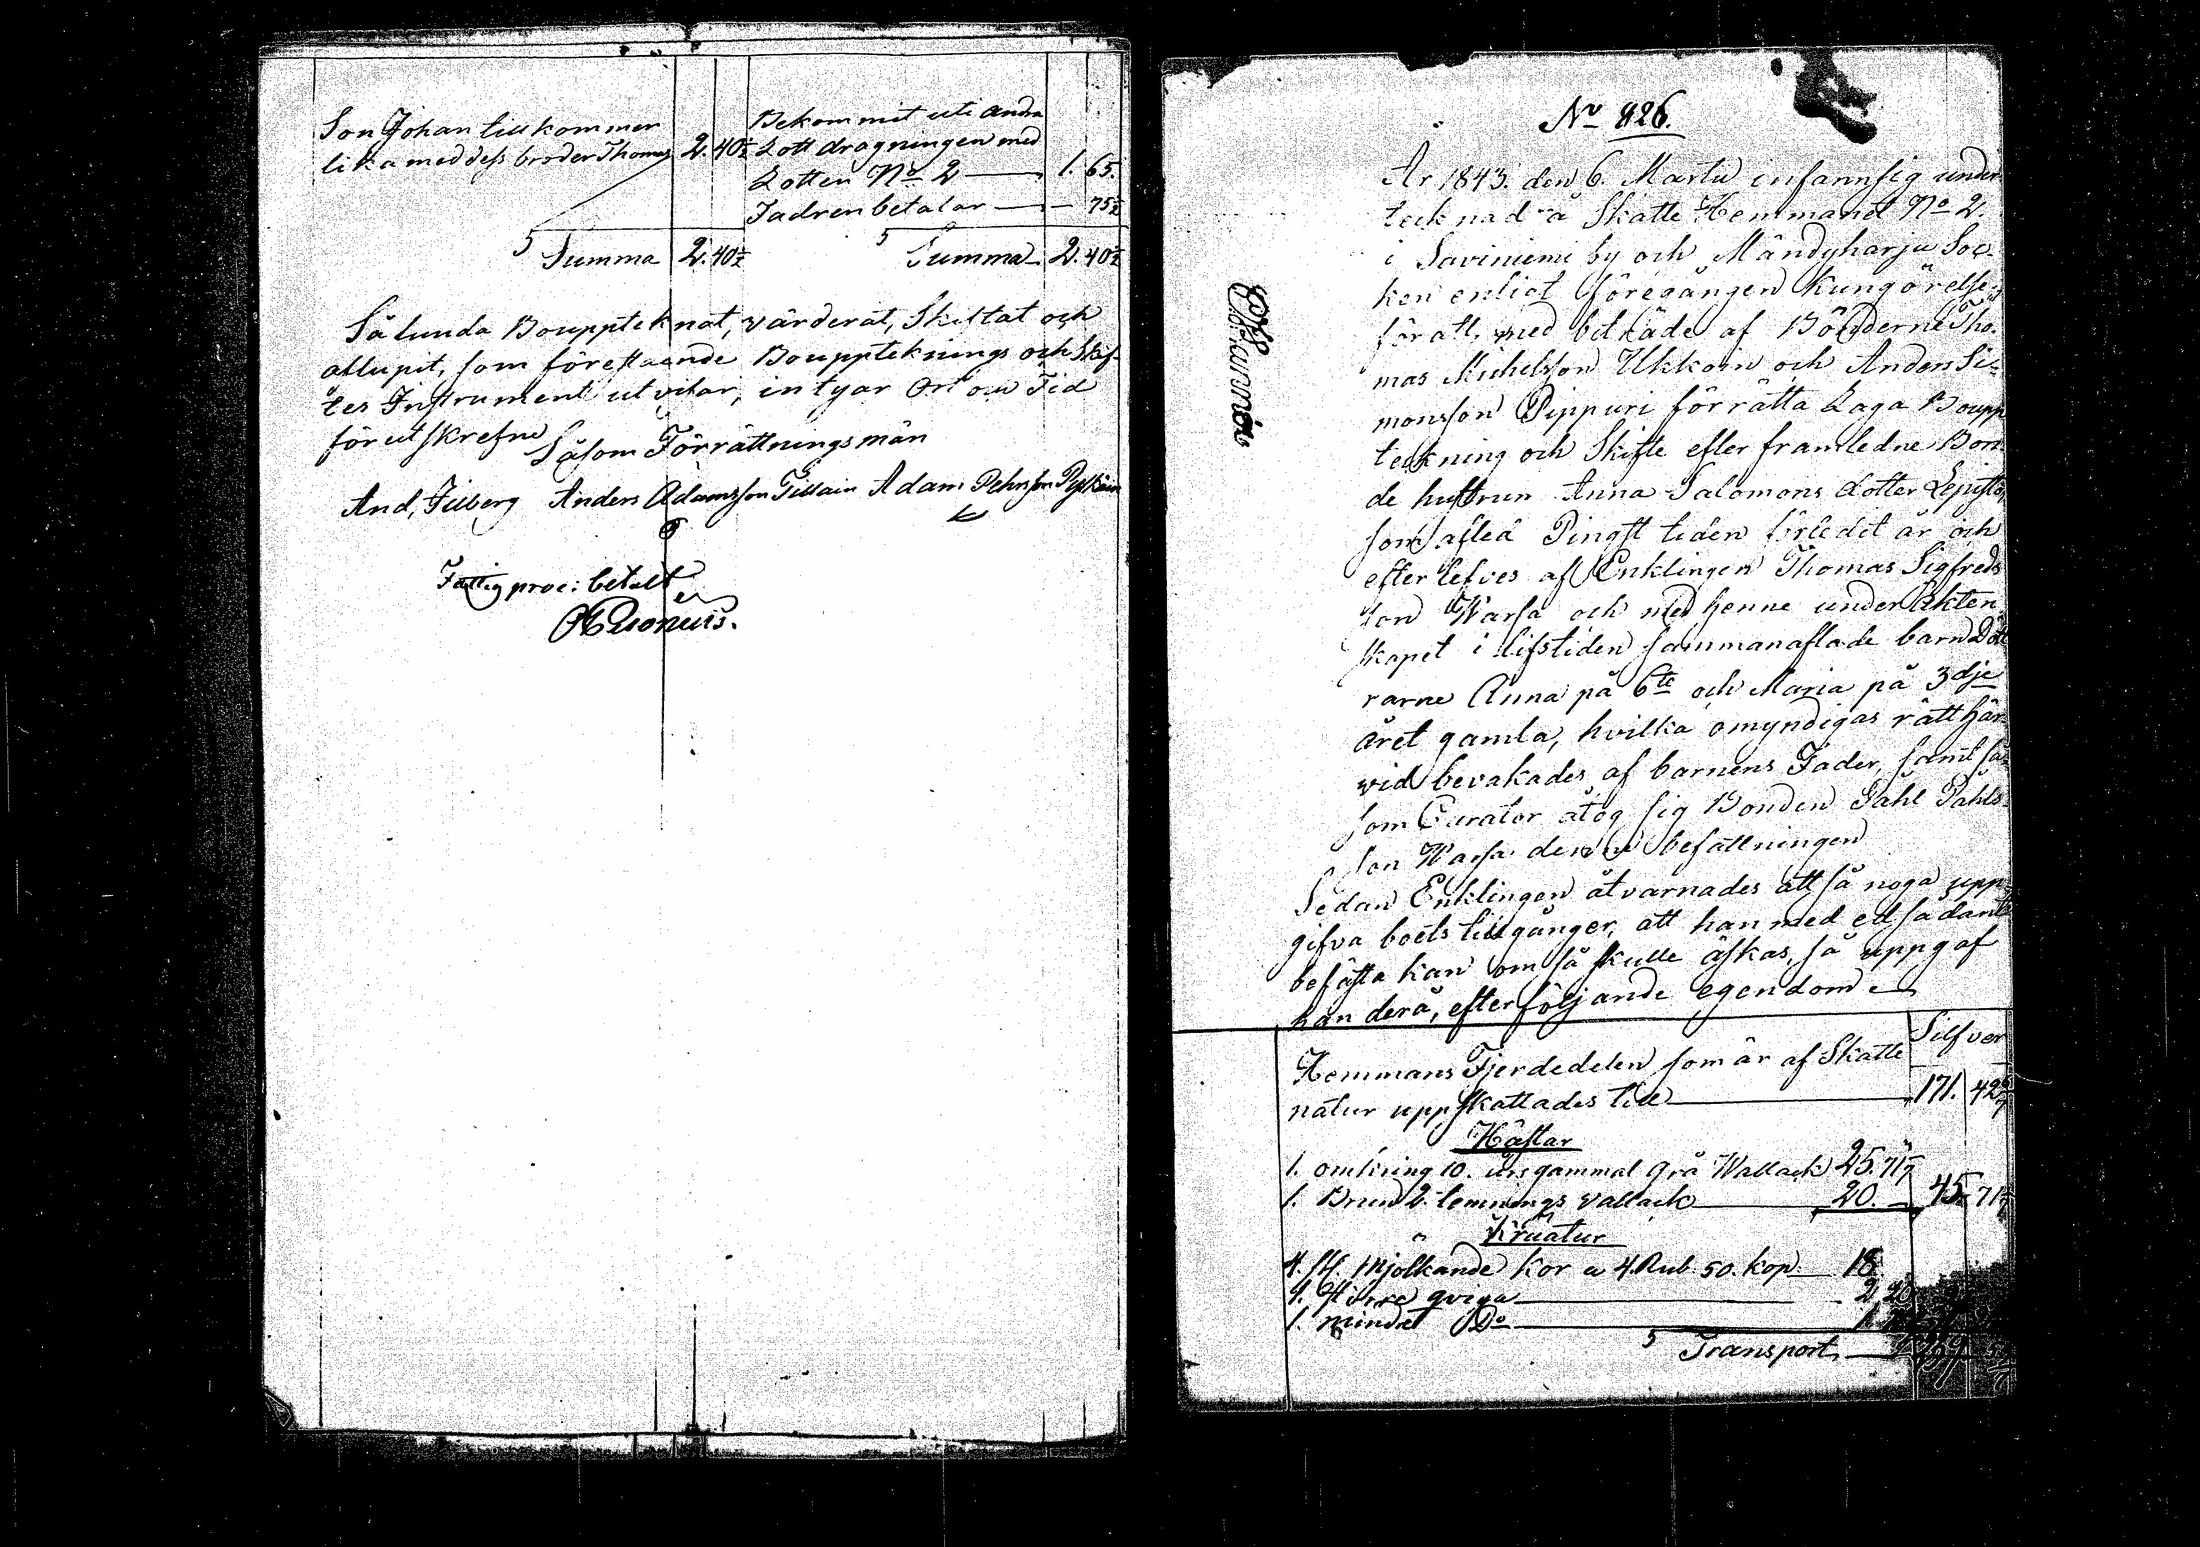 Son Johan tillkommer
lika med dess broder Thomas 2. 40½
Summa 2. 40½
Bekommit uti andra
Lottdragningen med
Lotten No 2 — 1. 65.
Fadren betalar — — 75½
Summa 2. 40½
Sålunda Bouppteknat, värderat, Skiftat och
aflupit, som förestaende Bouppteknings och Skif-
tes Instrument utvisar, intygar Ort och Tid
förutskrefne
Såsom Förrättningsmän
And, Filberg Anders Adamsson Adam Pehrson
Fattig proc: betalt
No 826.
År 1843. den 6. Martii infann sig under-
tecknad å Skatte Hemmanet No 2.
i Saviniemi by och Mändyharju Soc-
ken enligt föregången Kungörelse,
för att, med biträde af Bönderne Tho-
mas Michelsson Ukkoin och Anders Si-
monsson Pippuri förrätta Laga Boupp
teckning och Skifte efter framledne Bon-
de hustrun Anna Salomons dotter
som afled Pingst tiden förledit år och
efterlefves af Enklingen Thomas Sigfreds
son Warsa och med henne under Äkten-
skapet i lifstiden sammanaflade barn Dött
rarne Anna på 6te och Maria på 3dje
året gamla, hvilka omyndigas rätt här-
vid bevakades af barnens Fader, samt så-
som Curator åtog sig Bonden Pahl Pahls-
son Warsa denna befattningen
Sedan Enklingen åtvarnades att så noga upp-
gifva boets tillgånger, att han med ed sådant
befästa kan om så skulle äskas, så uppgaf
han derå, efterföljande egendom
Silfver
Hemmans Fjerdedelen som är af Skatte
natur uppskattades till — 171. 42
Hästar
1. omkring 10. års gammal grå Wallack 25. 71
1. Brun 2. lemnings vallack — 20. — 45. 71
Kreatur
4. st. Mjölkande kor a 4. Rub. 50. kop — 18
1. Större qviga — 2
1. mindre Do —
Transport,